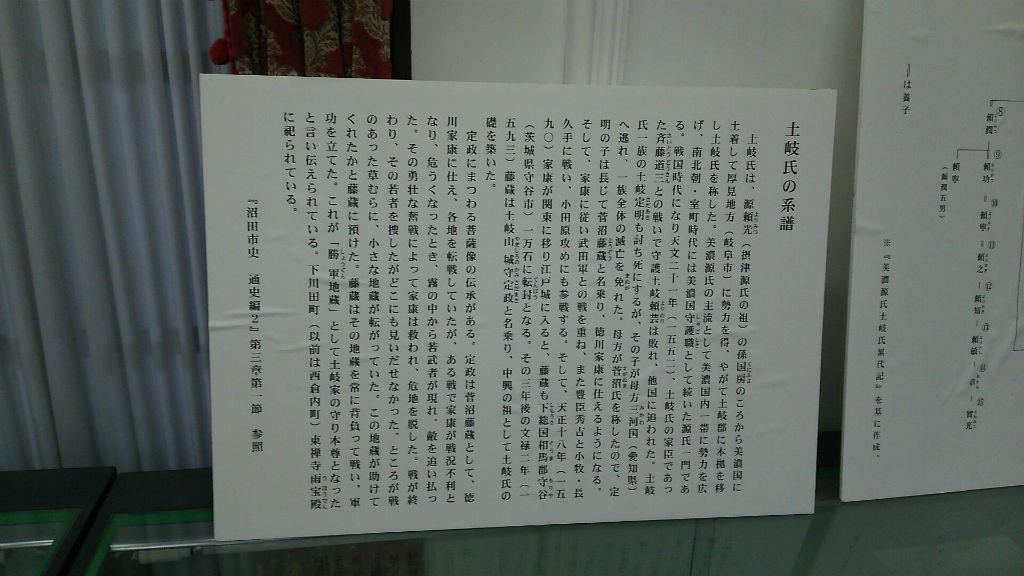 土岐氏の系譜
土岐氏は、源頼光（摂津源氏の祖）の孫国房のころから美濃国に
土着して厚見地方（岐阜市）に勢力を得、やがて土岐郡に本拠を移
し土岐氏を称した。美濃源氏の主流として美濃国内一帯に勢力を広
げ、南北朝・室町時代には美濃国守護職として続いた源氏一門であ
る。戦国時代になり天文二十一年（一五五二）、土岐氏の家臣であっ
た斉藤道三との戦いで守護土岐頼芸は敗れ、他国に追われた。土岐
氏一族の土岐定明も討ち死にするが、その子が母方三河国（愛知県）
へ逃れ、一族全体の滅亡を免れた。母方が菅沼氏を称したので、定
明の子は長じて菅沼藤蔵と名乗り、徳川家康に仕えるようになる。
そして、家康に従い武田軍との戦を重ね、また豊臣秀吉と小牧・長
久手に戦い、小田原攻めにも参戦する。そして、天正十八年（一五
九〇）家康が関東に移り江戸城に入ると、藤蔵も下総国相馬郡守谷
（茨城県守谷市）一万石に転封となる。その三年後の文禄二年（一
五九三）藤蔵は土岐山城守定政と名乗り、中興の祖として土岐氏の
礎を築いた。
定政にまつわる菩薩像の伝承がある。定政は菅沼藤蔵として、徳
川家康に仕え、各地を転戦していたが、ある戦で家康が戦況不利と
なり、危うくなったとき、霧の中から若武者が現れ、敵を追い払っ
た。その勇壮な奮戦によって家康は救われ、危地を脱した。戦が終
わり、その若者を捜したがどこにも見いだせなかった。ところが戦
のあった草むらに、小さな地蔵が転がっていた。この地蔵が助けて
くれたかと藤蔵に預けた。藤蔵はその地蔵を常に背負って戦い、軍
功を立てた。これが「勝軍地蔵」として土岐家の守り本尊となった
と言い伝えられている。下川田町（以前は西倉内町）東禅寺雨宝殿
に祀られている。
『沼田市史　通史編２』第三章第一節　参照
⑧
頼潤
⑨
頼功
⑩
＝頼寧
⑪
＝頼之
⑫
―頼知
⑬
―頼敏
⑭
―章
⑮
―實光
頼寧
（頼潤五男）
『は養子
※『美濃源氏土岐氏累代記』を基に作成。